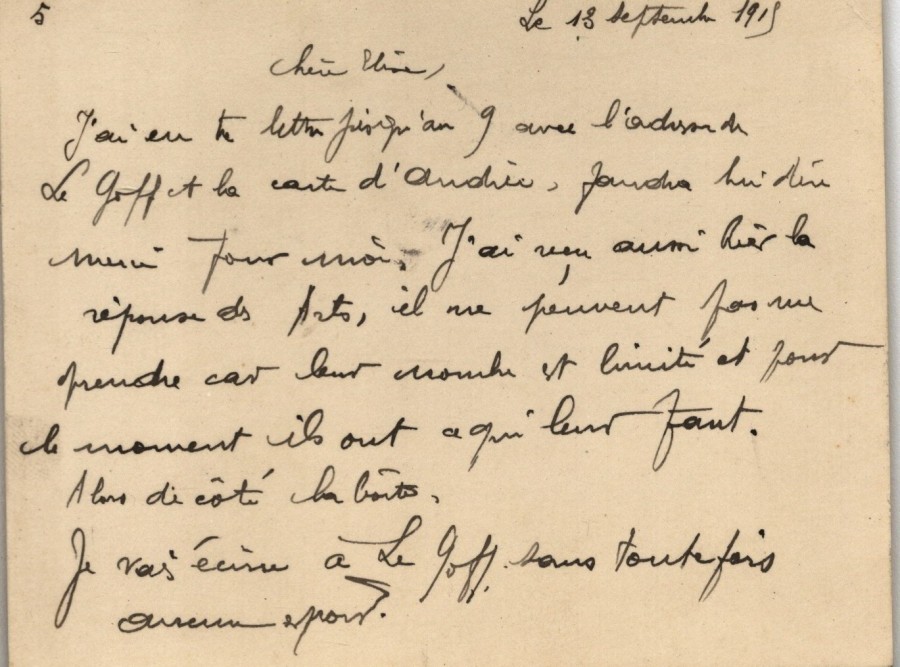 5
Le 13 septembre 1915
Chère Elise,
J'ai eu ta lettre jusqu'au 9 avec l'adresse de
Le Goff et la carte d'Andrée, faudra lui dire
merci pour moi. J'ai reçu aussi hier la
réponse des Arts, il ne peuvent pas me
prendre car leur nombre est limité et pour
le moment ils ont ce qui leur faut.
Alors de côté la boîte.
Je vais écrire à Le Goff. sans toutefois
aucun espoir.